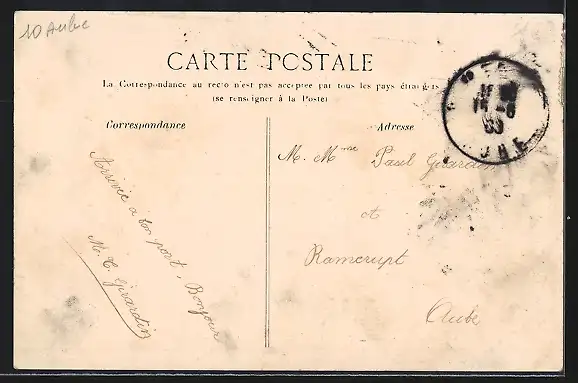 10 Aube
CARTE POSTALE
La Correspondance au recto n'est pas acceptée par tous les pays étrangers
(se renseigner à la Poste)
Correspondance
Adresse
Arrivée à bon port, Bonjour
M. C. Girardin
M. Mme Paul Girardin
et
Ramerupt
Aube